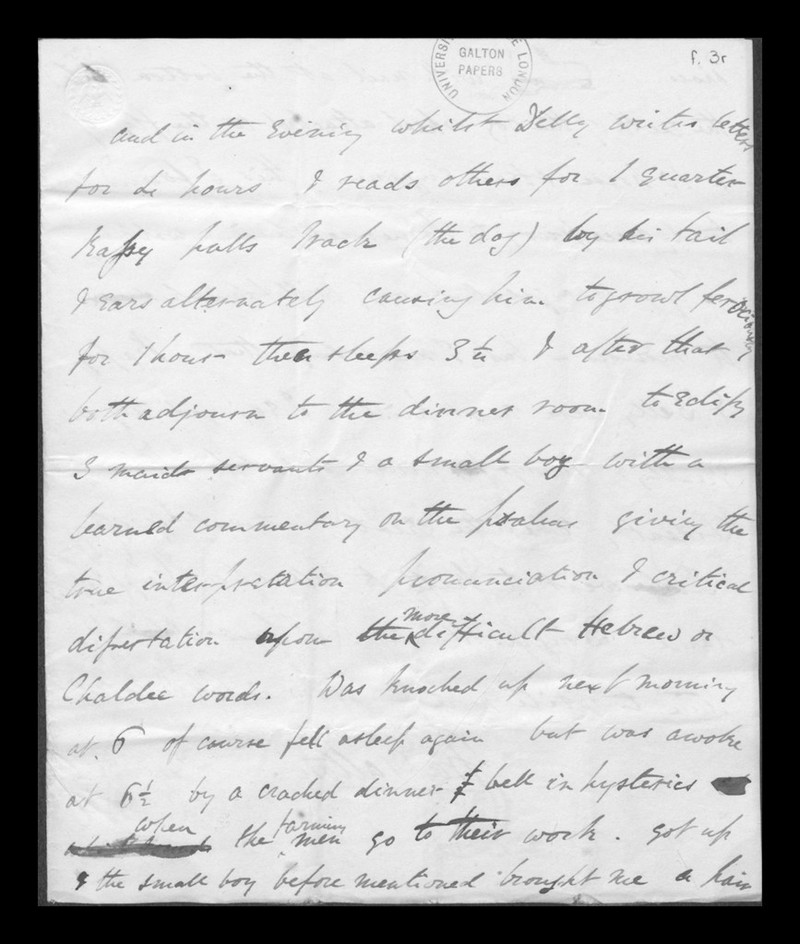 UNIVERSI E LONDON
GALTON
PAPERS
f. 3r
and in the Evening whilst Delly writes letters
for hours & reads others for 1 quarter
pulls (the dog) by his tail
& Ears alternately causing him to growl ferociously
for 1 hour then sleeps 3 & after that
both adjourn to the dinner room to Edify
3 maids servants & a small boy with a
learned commentary on the psalms giving the
true interpretation pronunciation & critical
dissertation upon the more difficult Hebrew or
Chaldee words. Was knocked up next morning
at 6 of course fell asleep again but was awoke
at 6½ by a cracked dinner bell in hysterics
when the farming men go to their work. Got up
& the small boy before mentioned brought me a pair